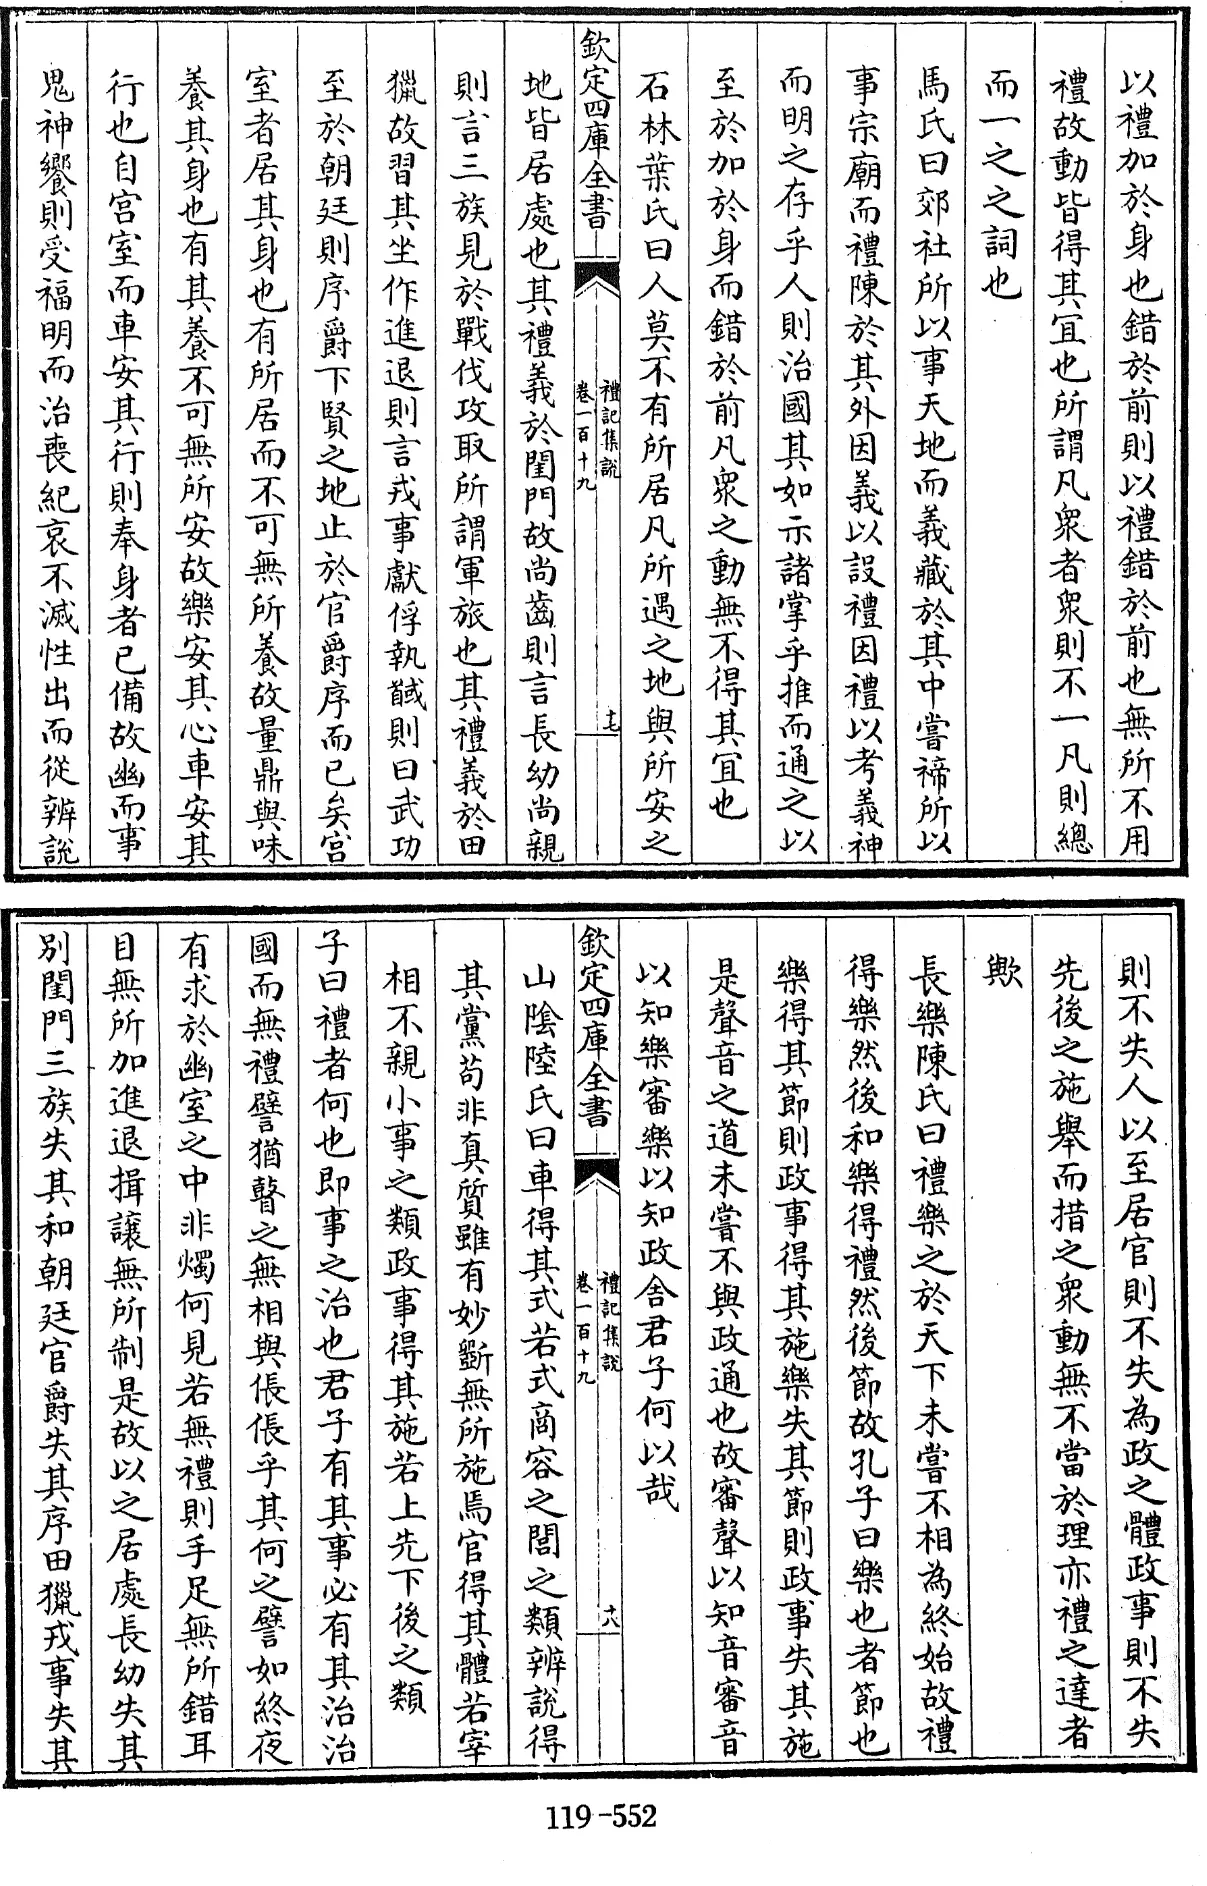 以禮加於身也錯於前則以禮錯於前也無所不用
禮故動皆得其宜也所謂凡衆者衆則不一凡則總
而一之之詞也
馬氏曰郊社所以事天地而義藏於其中嘗禘所以
事宗廟而禮陳於其外因義以設禮因禮以考義神
而明之存乎人則治國其如示諸掌乎推而通之以
至於加於身而錯於前凡衆之動無不得其宜也
石林葉氏曰人莫不有所居凡所遇之地與所安之
欽定四庫全書
禮記集說
卷一百十九
十七
地皆居處也其禮義於閨門故尚齒則言長幼尚親
則言三族見於戰伐攻取所謂軍旅也其禮義於田
獵故習其坐作進退則言戎事獻俘執馘則曰武功
至於朝廷則序爵下賢之地止於官爵序而已矣宫
室者居其身也有所居而不可無所養故量鼎與味
養其身也有其養不可無所安故樂安其心車安其
行也自宫室而車安其行則奉身者已備故幽而事
鬼神饗則受福明而治喪紀哀不滅性出而從辨說
則不失人以至居官則不失為政之體政事則不失
先後之施舉而措之衆動無不當於理亦禮之達者
歟
長樂陳氏曰禮樂之於天下未嘗不相為終始故禮
得樂然後和樂得禮然後節故孔子曰樂也者節也
樂得其節則政事得其施樂失其節則政事失其施
是聲音之道未嘗不與政通也故審聲以知音審音
以知樂審樂以知政舍君子何以哉
欽定四庫全書
禮記集說
卷一百十九
十八
山隂陸氏曰車得其式若式商容之閭之類辨說得
其黨苟非真質雖有妙斵無所施焉官得其體若宰
相不親小事之類政事得其施若上先下後之類
子曰禮者何也即事之治也君子有其事必有其治治
國而無禮譬猶瞽之無相與倀倀乎其何之譬如終夜
有求於幽室之中非燭何見若無禮則手足無所錯耳
目無所加進退揖讓無所制是故以之居處長幼失其
別閨門三族失其和朝廷官爵失其序田獵戎事失其
119-552